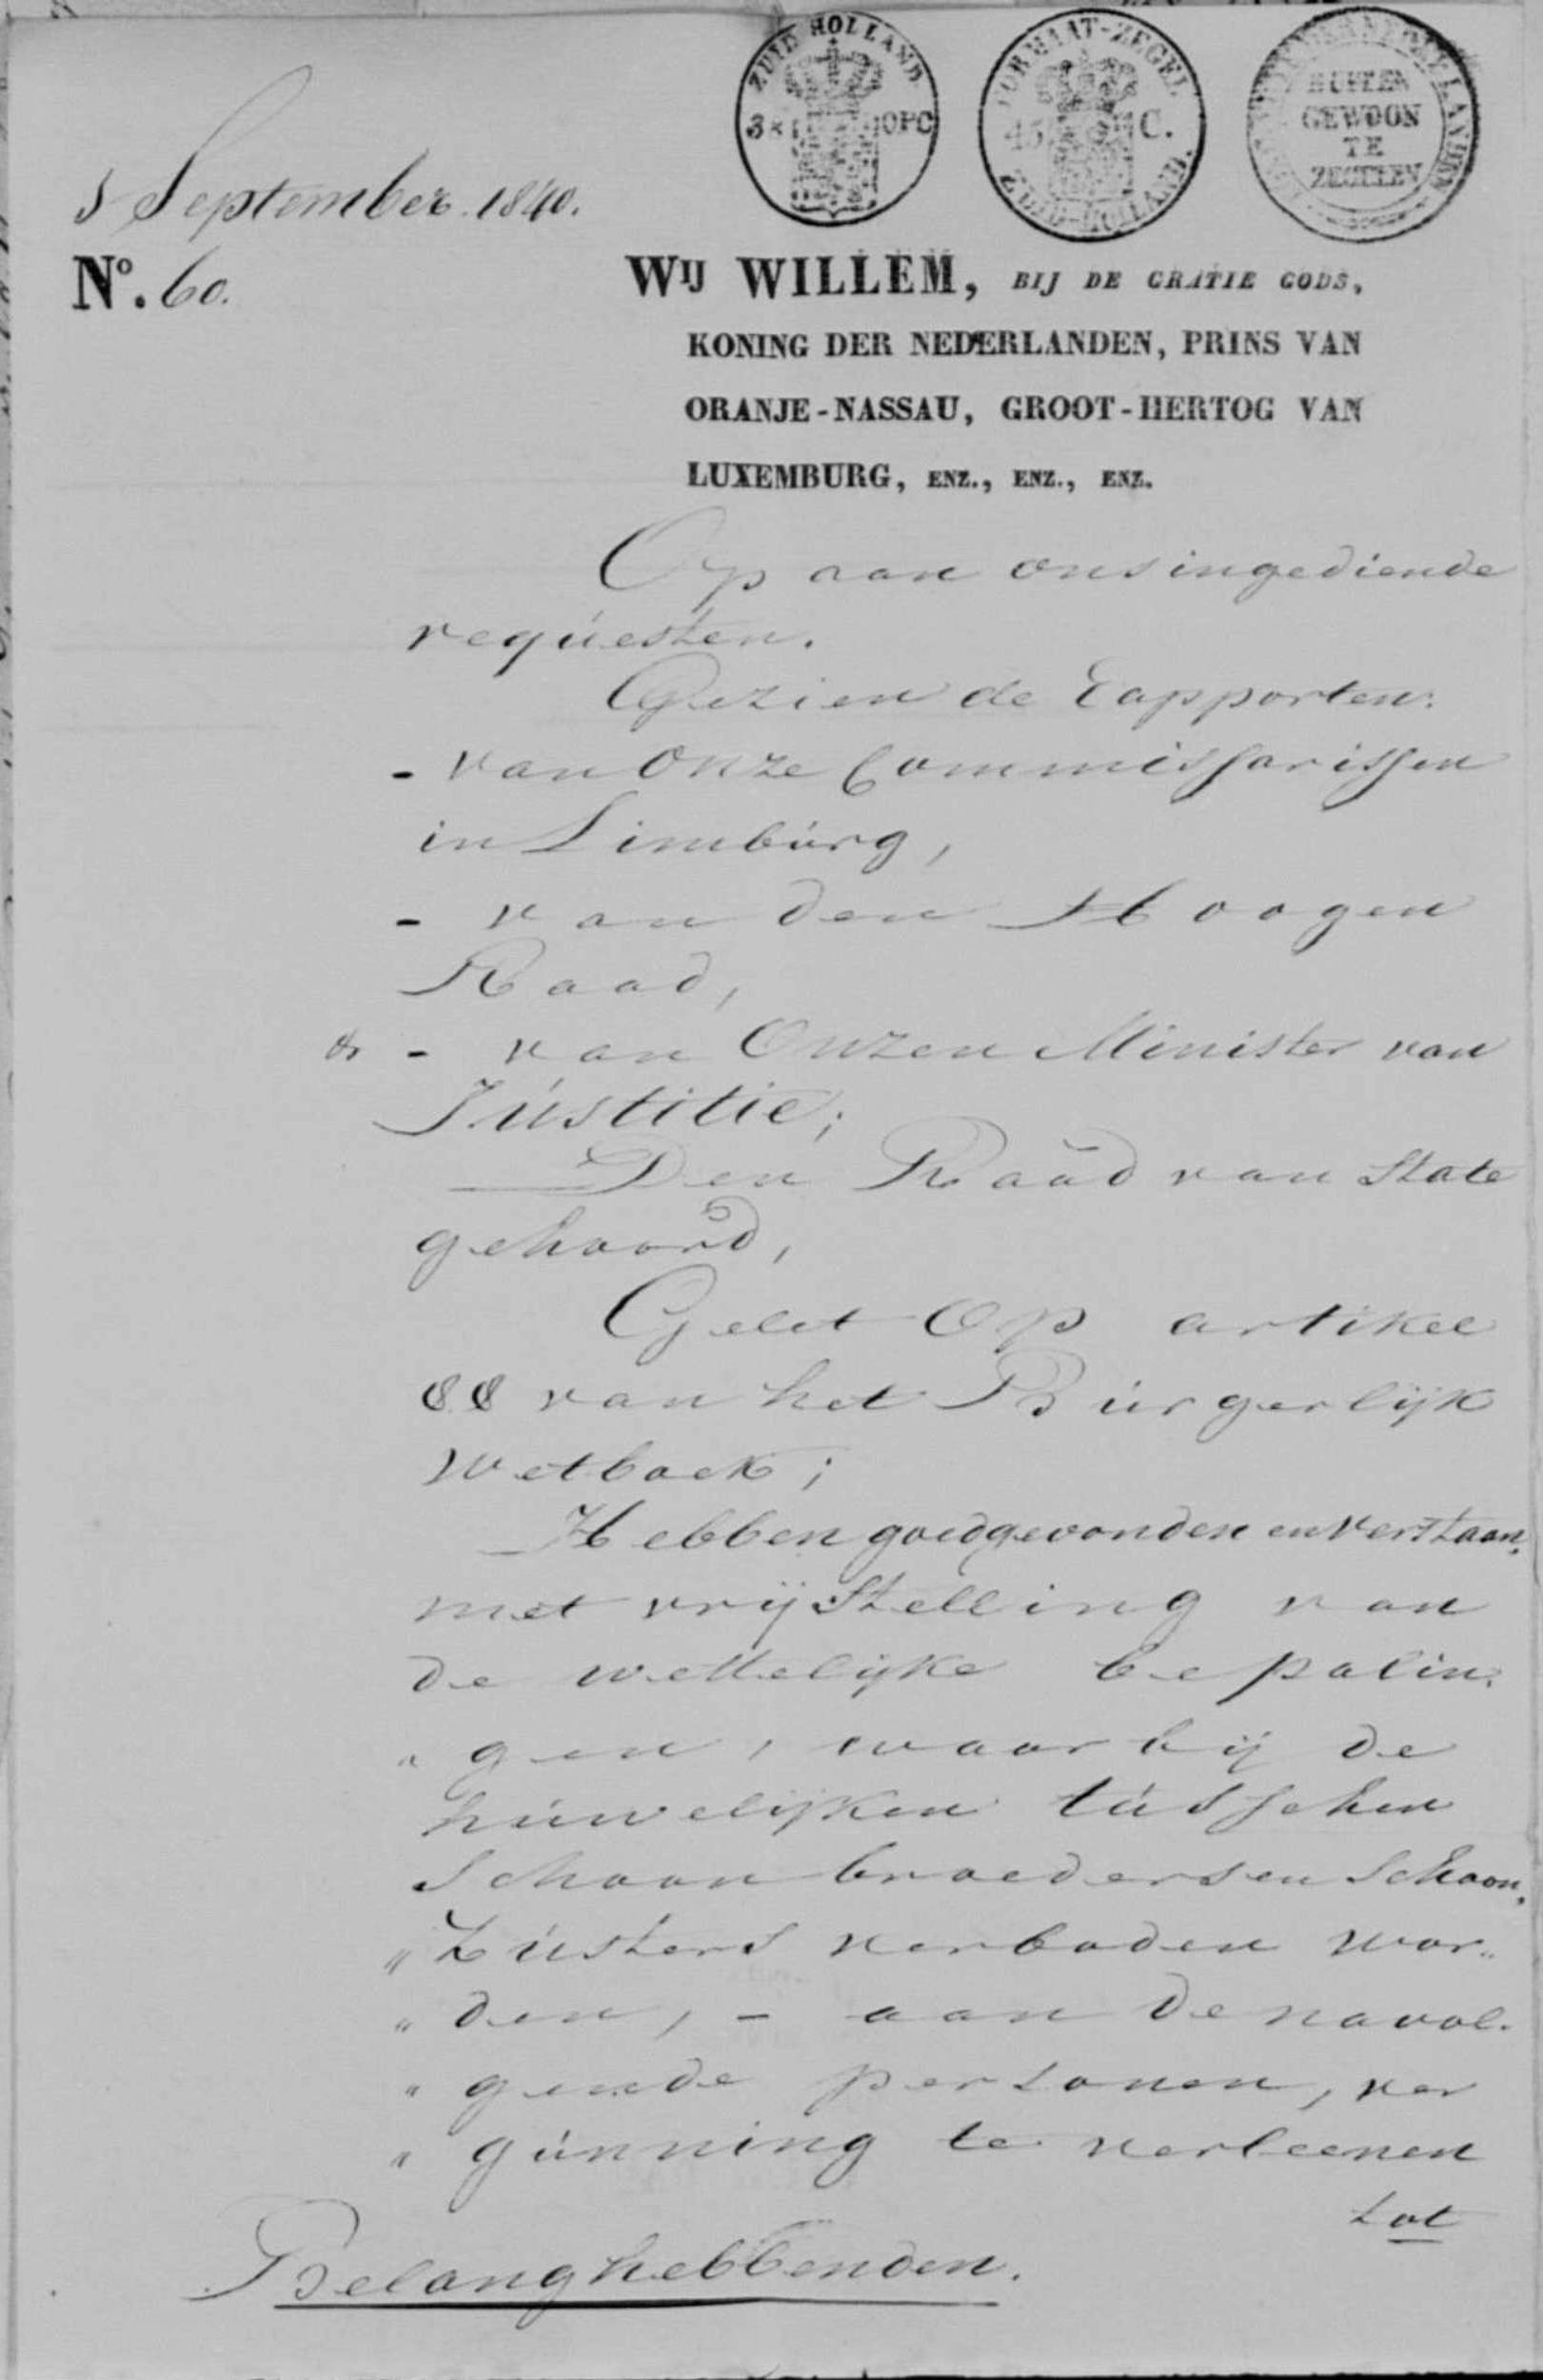 ZUID HOLLAND
38 OPC
FORMAAT-ZEGEL
45 C.
ZUID-HOLLAND.
BUITEN
GEWOON
TE
ZEGELEN
5 September 1840.
N°. 60.
WIJ WILLEM, BIJ DE GRATIE GODS,
KONING DER NEDERLANDEN, PRINS VAN
ORANJE-NASSAU, GROOT-HERTOG VAN
LUXEMBURG, ENZ., ENZ., ENZ.
Op aan ons ingediende
requesten.
Gezien de rapporten:
- van Onze Commissarissen
in Limburg,
- van den Hoogen
Raad,
& - van Onzen Minister van
Justitie;
Den Raad van State
gehoord,
Gelet Op artikel
88 van het Burgerlijk
Wetboek;
Hebben goedgevonden en verstaan,
met vrijstelling van
de wettelijke bepalin,
" gen, waarbij de
huwelijken tusschen
Schoonbroeders en Schoon,
" Zusters verboden wor„
" den, - aan de navol„
" gende personen, ver
" gunning te verleenen
tot
Belanghebbenden.